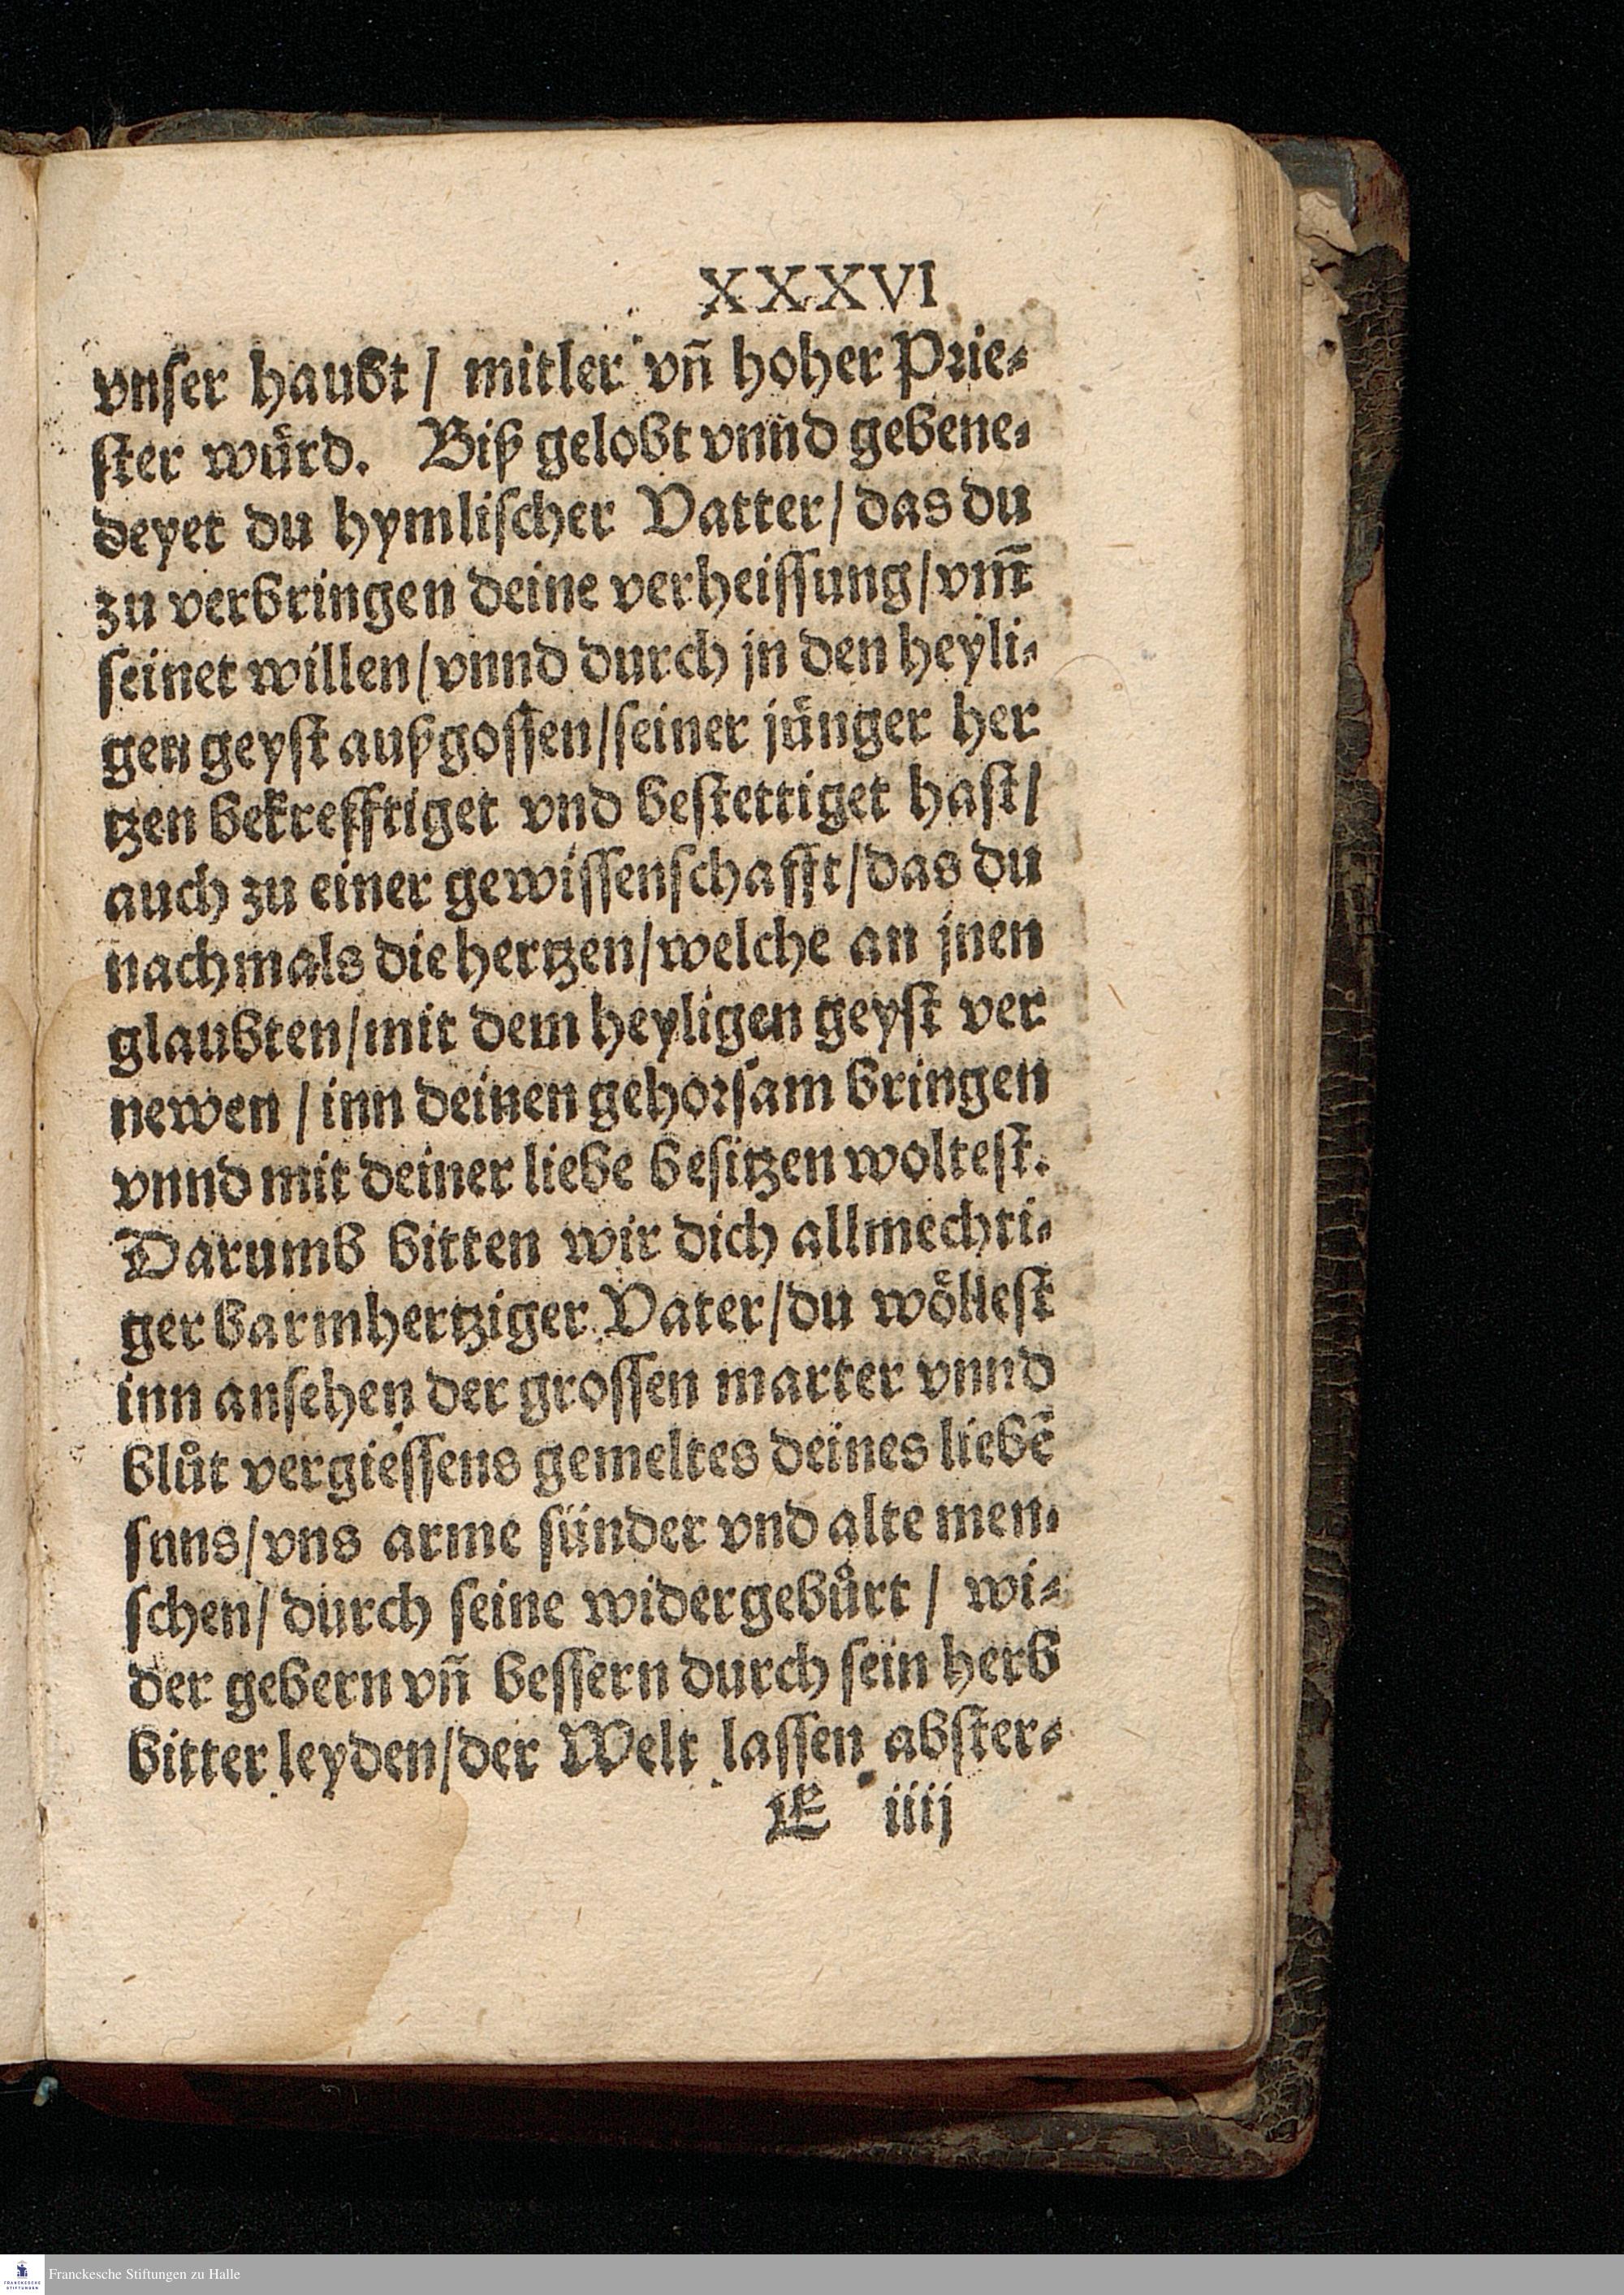 XXXVI
vnſer haubt / mitler vñ hoher Prie⸗
ſter wuͤrd. Biß gelobt vnnd gebene⸗
deyet du hymliſcher Vatter / das du
zu verbringen deine verheiſſung / vm̃
ſeinet willen / vnnd durch jn den heyli⸗
gen geyſt außgoſſen / ſeiner juͤnger her
tzen bekrefftiget vnd beſtettiget haſt /
auch zu einer gewiſſenſchafft / das du
nachmals die hertzen / welche an jnen
glaubten / mit dem heyligen geyſt ver
newen / inn deinen gehorſam bringen
vnnd mit deiner liebe beſitzen wolteſt.
Darumb bitten wir dich allmechti⸗
ger barmhertziger Vater / du woͤlleſt
inn anſehen der groſſen marter vnnd
bluͦt vergieſſens gemeltes deines liebẽ
ſnns / vns arme ſünder vnd alte men⸗
ſchen / durch ſeine widergebuͦrt / wi⸗
der gebern vñ beſſern durch ſein herb
bitter leyden / der Welt laſſen abſter⸗
E iiij
Franckesche Stiftungen zu Halle